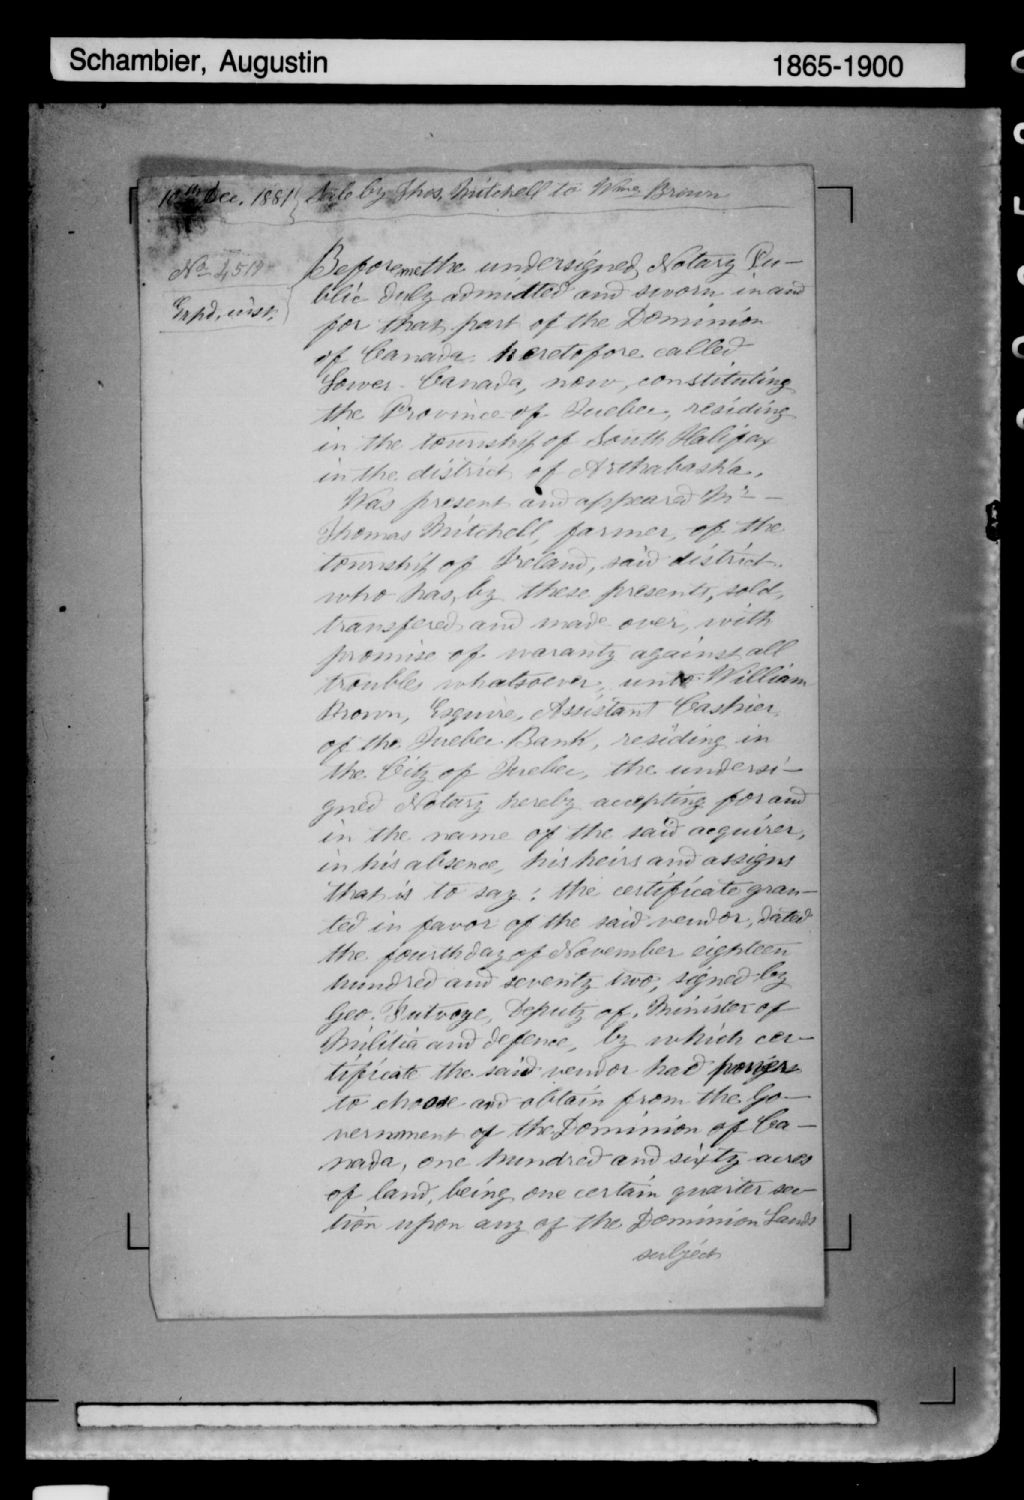 Schambier, Augustin 1865-1900
10th Dec. 1881 Sale by Thos. Mitchell to Wm. Brown
No
Before me the undersigned, Notary Pu-
blic duly admitted and sworn in and
for that part of the Dominion
of Canada heretofore called
Lower Canada, now, constituting
the Province of Quebec, residing
in the township of South Halifax
in the district of Arthabaska.
Was present and appeared Mr -
Thomas Mitchell, farmer, of the
township of Ireland, said district,
who has, by these presents, sold,
transfered and made over, with
promise of waranty against all
trouble whatsoever, unto William
Brown, Esquire, Assistant Cashier,
of the Quebec Bank, residing in
the City of Quebec, the undersi-
gned Notary hereby accepting for and
in the name of the said acquirer,
in his absence, his heirs and assigns
that is to say: the certificate gran-
ted in favor of the said vendor, dated
the fourth day of November eighteen
hundred and seventy two, signed by
Geo. Futvoye, Deputy of Minister of
Militia and defence, by which cer-
tificate the said vendor had power
to choose and obtain from the Go-
vernment of the Dominion of Ca-
nada, one hundred and sixty acres
of land, being one certain quarter sec-
tion upon any of the Dominion Lands
subject